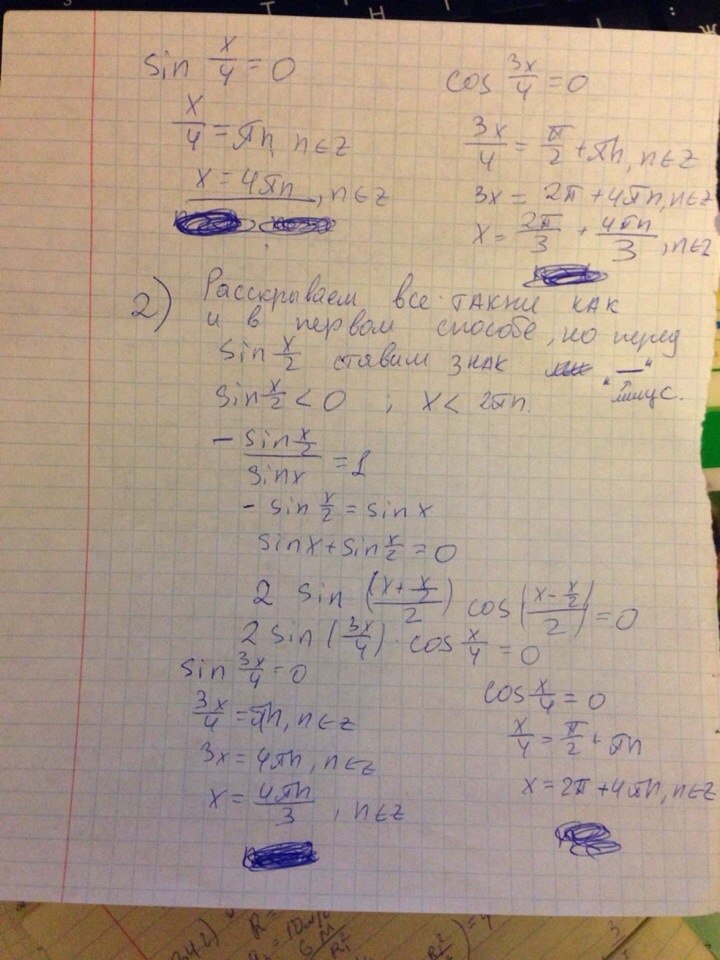 sin x/4 = 0
x/4 = πn, n∈z
x = 4πn, n∈z
cos 3x/4 = 0
3x/4 = π/2 + πn, n∈z
3x = 2π + 4πn, n∈z
x = 2π/3 + 4πn/3, n∈z
2) Расскрываем все также как
и в первом способе, но перед
sin x/2 ставим знак "—"
минус.
sin x/2 < 0 ; x < 2πn.
- sin x/2 / sinx = 1
- sin x/2 = sin x
sinx + sin x/2 = 0
2 sin ((x + x/2)/2) cos ((x - x/2)/2) = 0
2 sin (3x/4) · cos x/4 = 0
sin 3x/4 = 0
3x/4 = πn, n∈z
3x = 4πn, n∈z
x = 4πn/3, n∈z
cos x/4 = 0
x/4 = π/2 + πn
x = 2π + 4πn, n∈z